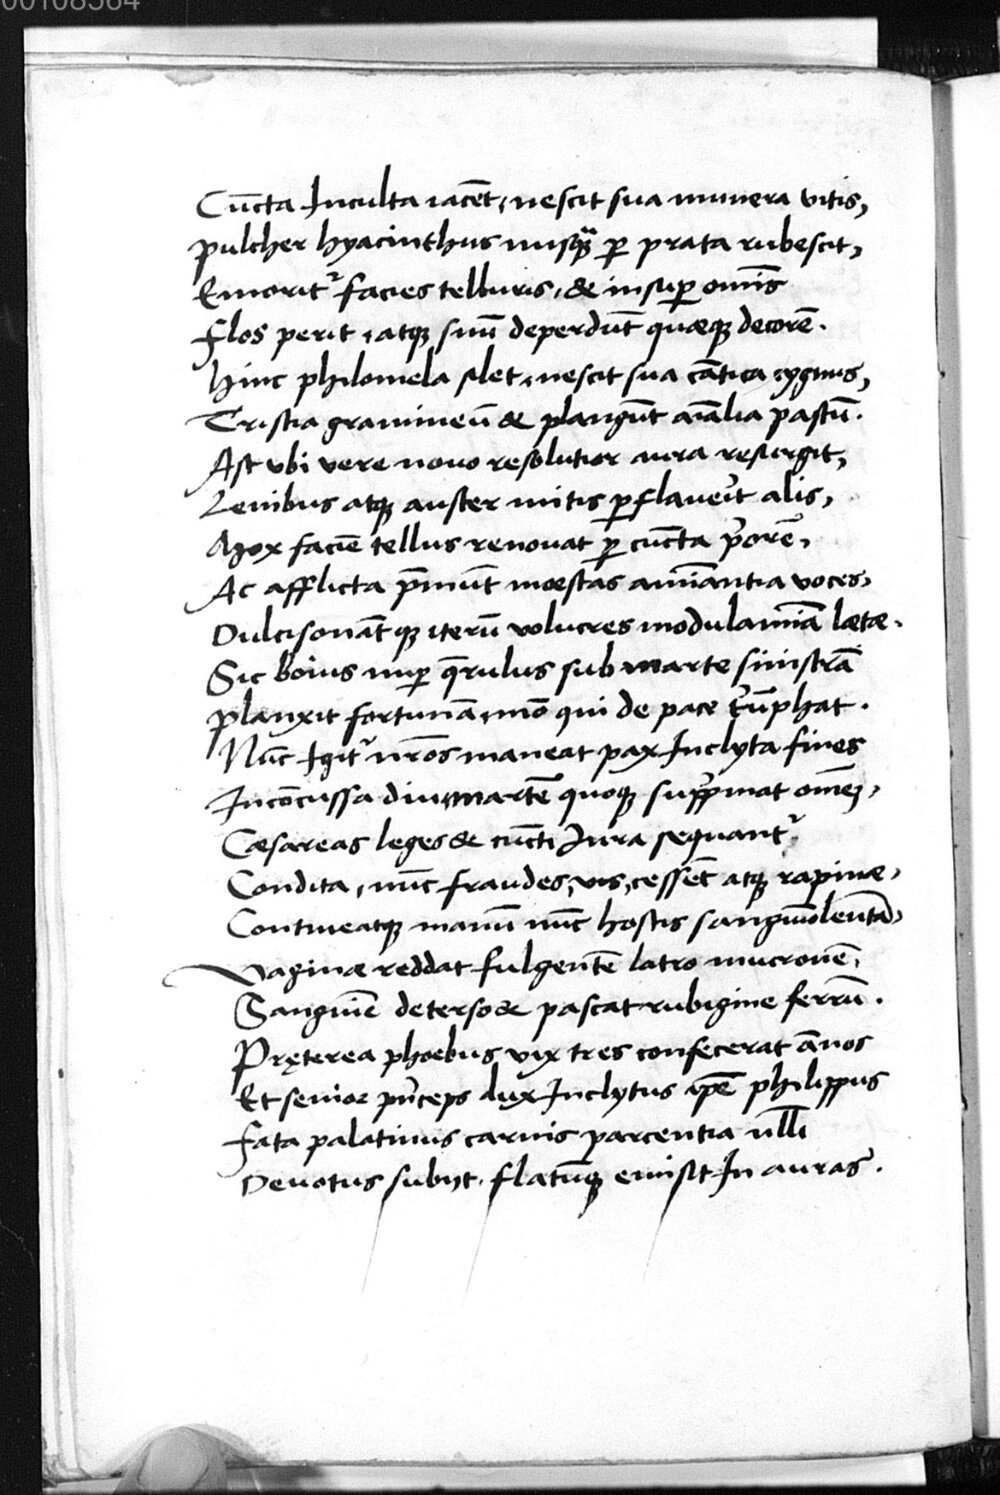 00108564
Cūcta Inculta iacēt, nescit sua munera vitis,
Pulcher hyacinthus nusq̄ꝫ ꝑ prata rubescit,
Emorit᷑ facies telluris, & insuꝑ omīs
Flos perit, atqꝫ suū deperdūt quæqꝫ decorē.
Hinc philomela silet, nescit sua cātica cygnus,
Tristia gramineū & plangūt aīalia pastū.
Ast vbi vere nouo resolutior aura resurgit,
Lenibus atqꝫ auster mitis ꝑflauerīt alis,
Mox faciē tellus renouat ꝑ cūcta p̄orē,
Ac afflicta p̄mūt moestas amīantia voces,
Dulcisonātqꝫ iterū volucres modulamīa lætæ.
Sic boius nuꝑ q̄rulus sub marte sinistrā
Planxit fortunā, mō qui de pace t̄ūphat.
Nūc Igit᷑ nr̄os maneat pax Inclyta fines
Incōcussa diu, martē quoqꝫ supp̄mat omēꝫ,
Cæsareas leges & cūcti Iura sequant᷑
Condita, nūc fraudes, vis, cessēt atqꝫ rapinæ,
Contineatqꝫ manū nūc hostis sanguīolentā,
Vaginæ reddat fulgentē latro mucronē,
Sanguīe deterso & pascat rubigine ferrū.
Pręterea phoebus vix tres confecerat ānos
Et senior pn̄ceps dux Inclytus ipē philippus
Fata palatinus carnis parcentia nl̄li
Deuotus subijt. flatūqꝫ emisit In auras.